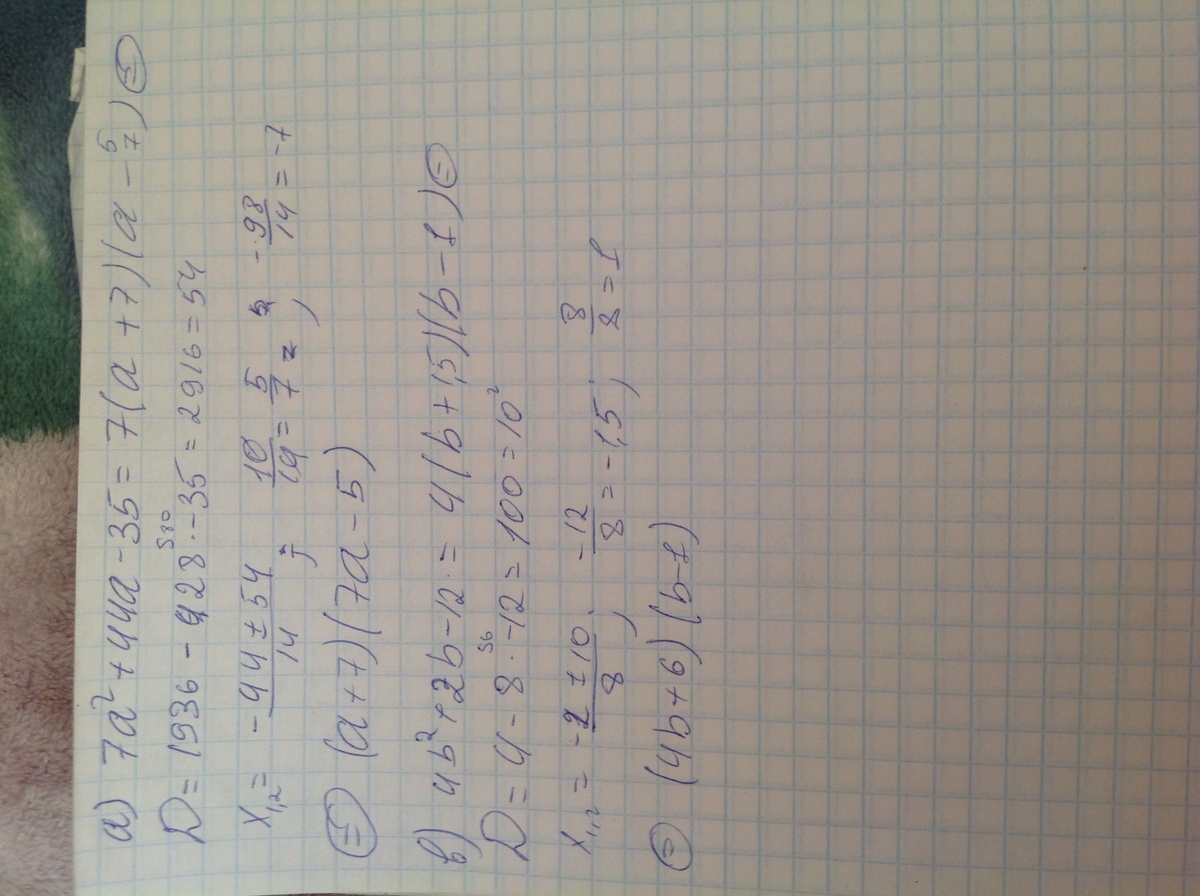 а) 7a² + 44a - 35 = 7(a + 7)(a - 5/7) =
D = 1936 - 428 · -35 = 2916 = 54
980
x₁,₂ = -44 ± 54 / 14 ; 10/14 = 5/7 = , -98/14 = -7
= (a + 7)(7a - 5)
в) 4b² + 2b - 12 = 4(b + 1,5)(b - 1) =
D = 4 - 8 · -12 = 100 = 10²
96
x₁,₂ = -2 ± 10 / 8 , -12/8 = -1,5 , 8/8 = 1
= (4b + 6)(b - 1)